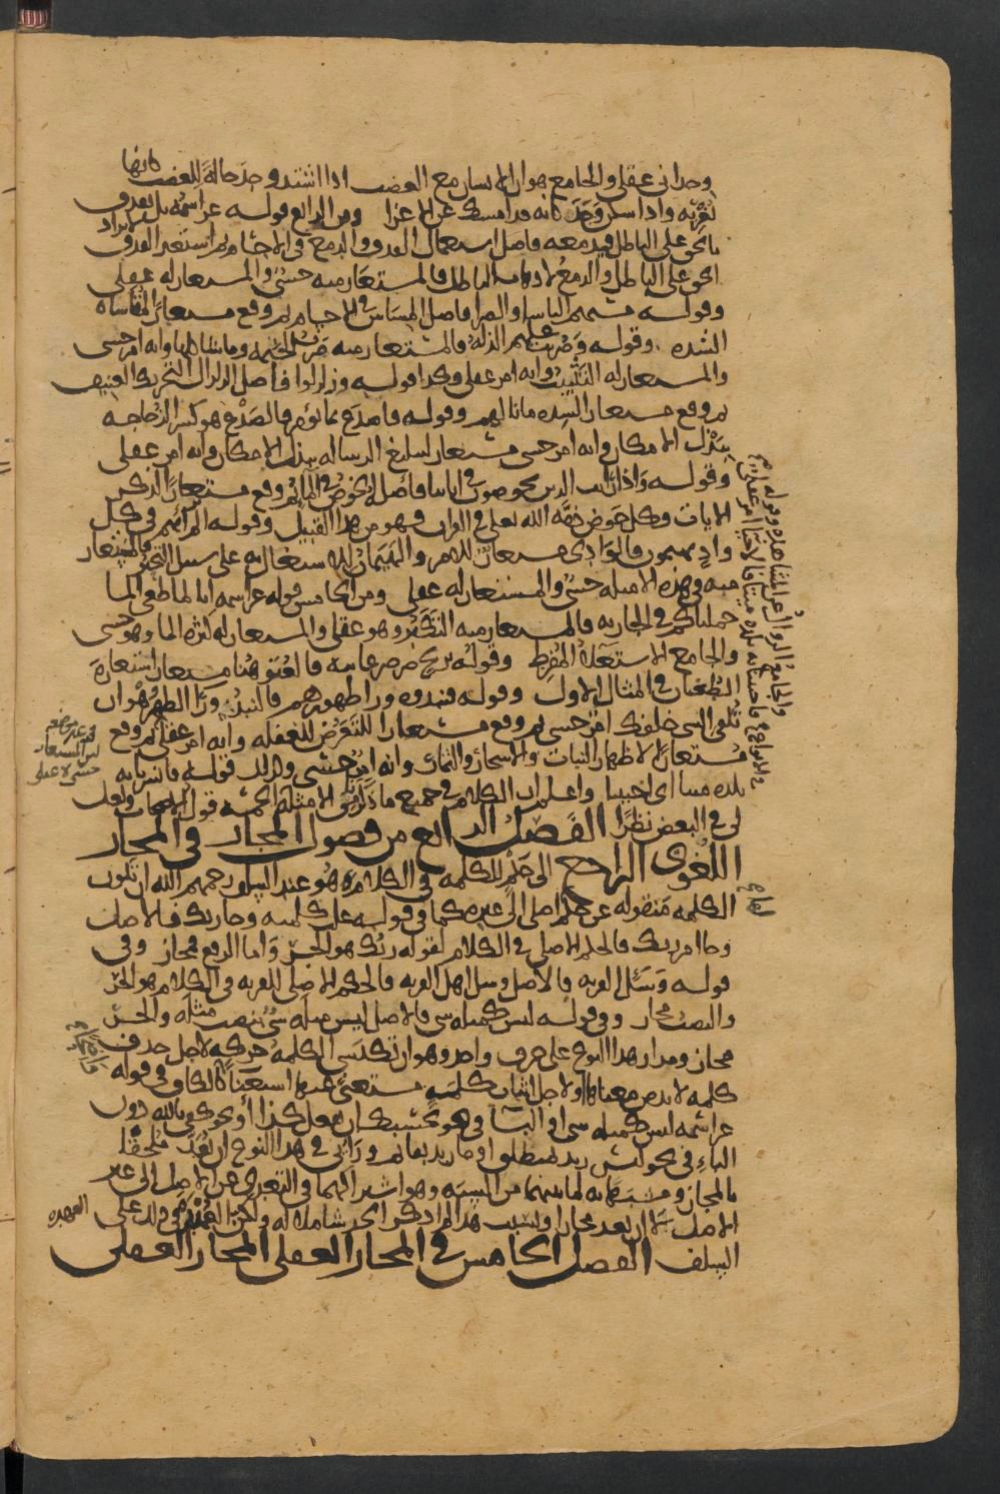 وجدانى عقلى والجامع هو ان الانسان مع الغضب اذا اشتد وجد حالة للغضب كانها
تغريه واذا سكن وجد كانه قد امسك عن الاغرا ومن الرابع قوله عز اسمه بل نقذف
بالحق على الباطل فيدمغه فاصل استعمال القذف والدمغ فى الاجسام ثم استعير القذف لايراد
الحق على الباطل والدمغ لاذهاب الباطل فالمستعار منه حسى والمستعار له عقلى
وقوله مستهم الباسا والضرا فاصل المساس فى الاجسام ثم وقع مستعارا لمقاساة
الشده وقوله وضربت عليهم الذلة فالمستعار منه ضرب الخيمه وما شاكلها وانه امر حسى
والمستعار له التثبيت وانه امر عقلى وكذا قوله وزلزلوا فاصل الزلزال التحريك العنيف
ثم وقع مستعارا لشدة ما نالهم وقوله فاصدع بما تؤمر فالصدع هو كسر الزجاجه
وهو امر حسى مستعار لتبليغ الرساله ببذل الامكان وانه امر عقلى
وقوله واذا رايت الذين يخوضون فى اياتنا فاصل الخوض فى الما ثم وقع مستعارا لذكر
الايات وكل خوض ذمه الله تعلى فى القران فهو من هذا القبيل وقوله الم تر انهم فى كل
واد يهيمون فالوادى مستعار للامر والهيمان للاشتغال به على سبيل التحير فالمستعار
منه فى هذه الامثله حسى والمستعار له عقلى ومن الخامس قوله عز اسمه انا لما طغى الما
حملناكم فى الجاريه فالمستعار منه التكبر وهو عقلى والمستعار له كثرة الما وهو حسى
والجامع الاستعلا المفرط وقوله بريح صرصر عاتيه فالعتو هنا مستعار استعارة
الطغيان فى المثال الاول وقوله فنبذوه ورا ظهورهم فالنبذ ورا الظهر هو ان
تلقى الشى خلفك امر حسى ثم وقع مستعارا للتعرض للغفله وانه امر عقلى ثم وقع
مستعارا لاظهار النبات والاشجار والثمار وانه امر حسى وكذلك قوله فانشرنا به
بلدة ميتا اى احيينا واعلم ان الكلام فى جميع ما ذكرت من الامثلة الخمسة قول الاصحاب ولعل
لى فى البعض نظرا الفصل الرابع من فصول المجاز فى المجاز
اللغوى الراجع الى حكم للكلمه فى الكلام هو عند السلف رحمهم الله ان تكون
الكلمه منقوله عن حكم اصلى الى غيره كما فى قوله علت كلمته وجا ربك فالاصل
وجا امر ربك فالحكم الاصلى فى الكلام لقوله ربك هو الجر واما الرفع فمجاز وفى
قوله وسئل القريه فالاصل وسل اهل القريه فالحكم الاصلى للقريه فى الكلام هو الجر
والنصب مجاز وفى قوله ليس كمثله شى فالاصل ليس مثله شى بنصب مثله والجر
مجاز ومدار هذا النوع على حرف واحد وهو ان تكتسى الكلمة حركه لاجل حذف
كلمه لا بد من معناها او لاجل اثبات كلمه مستغنى عنها استغنا كالكاف فى قوله
عز اسمه ليس كمثله شى او البا فى نحو بحسبك ان تفعل كذا او نحو كفى بالله دون
الباء فى نحو ليس زيد بمنطلق او ما زيد بقائم ورايى فى هذا النوع ان يعد ملحقا
بالمجاز ومشبها به لما بينهما من الشبه وهو اشتراكهما فى التعدى عن الاصل الى غير
الاصل لا ان يعد مجازا ولسبب هذا لم اذكر الحد شاملا له ولكن العهدة فى ذلك على
السلف الفصل الخامس فى المجاز العقلى المجاز العقلى